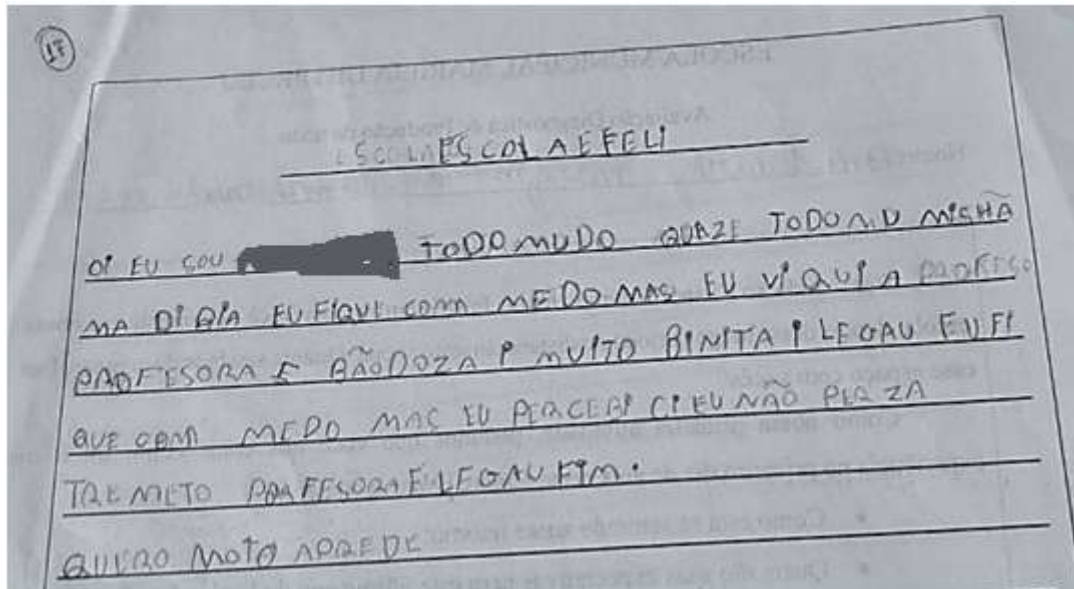 17
ESCOLAEFELI
OI EU SOU TODO MUDO QUAZE TODO MD MIGHÃ
MA DI RIA EU FIQUE COM MEDO MAS EU VI QUI A PROFESO
PROFESORA E BÃODOZA I MUITO BINITA I LEGAU EU FI
QUE COM MEDO MAS EU PERCEBI CI EU NÃO PERZA
TREMETO PROFESORA E LEGAU FIM.
QUERO MOTO APREDE